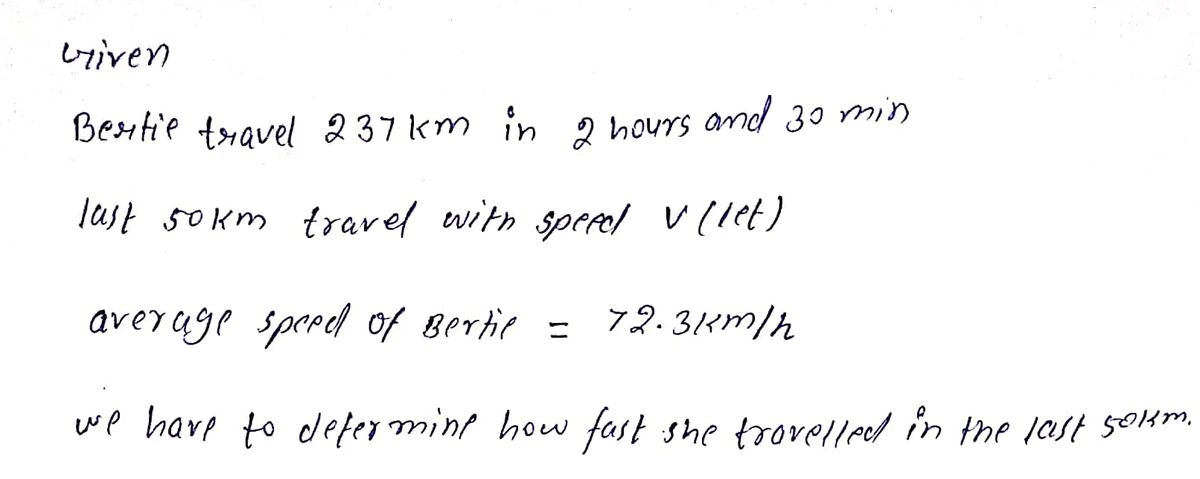 Given
Bertie travel 237 km in 2 hours and 30 min
last 50 km travel with speed v (let)
average speed of Bertie = 72.3 km/h
we have to determine how fast she travelled in the last 50km.